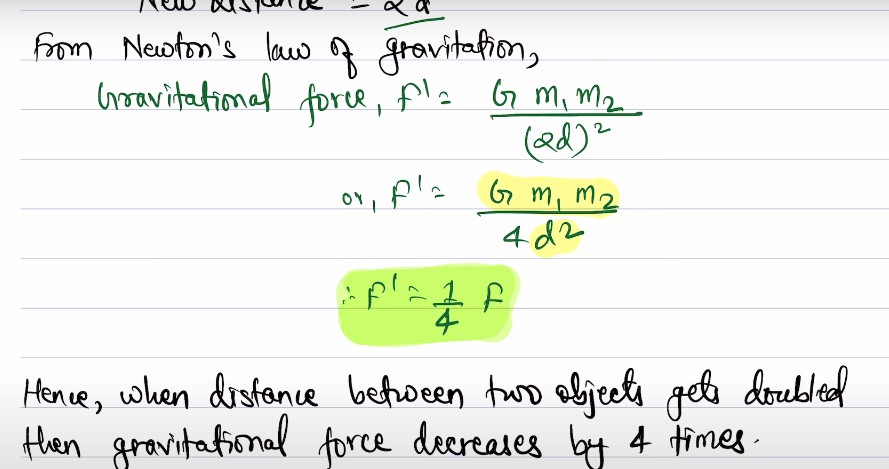 New distance = 2d
From Newton's law of gravitation,
Gravitational force, F' = G m₁ m₂ / (2d)²
or, F' = G m₁ m₂ / 4 d2
∴ F' = 1/4 F
Hence, when distance between two objects gets doubled
then gravitational force decreases by 4 times.